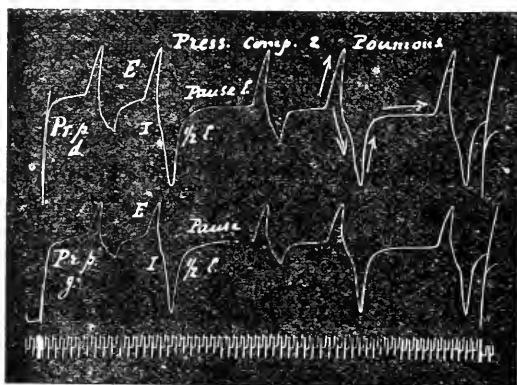 Press. comp. 2 Poumons
E
Pause l.
Pr. p. d.
I
½ l.
E
Pause
Pr. p. g.
I
½ l.